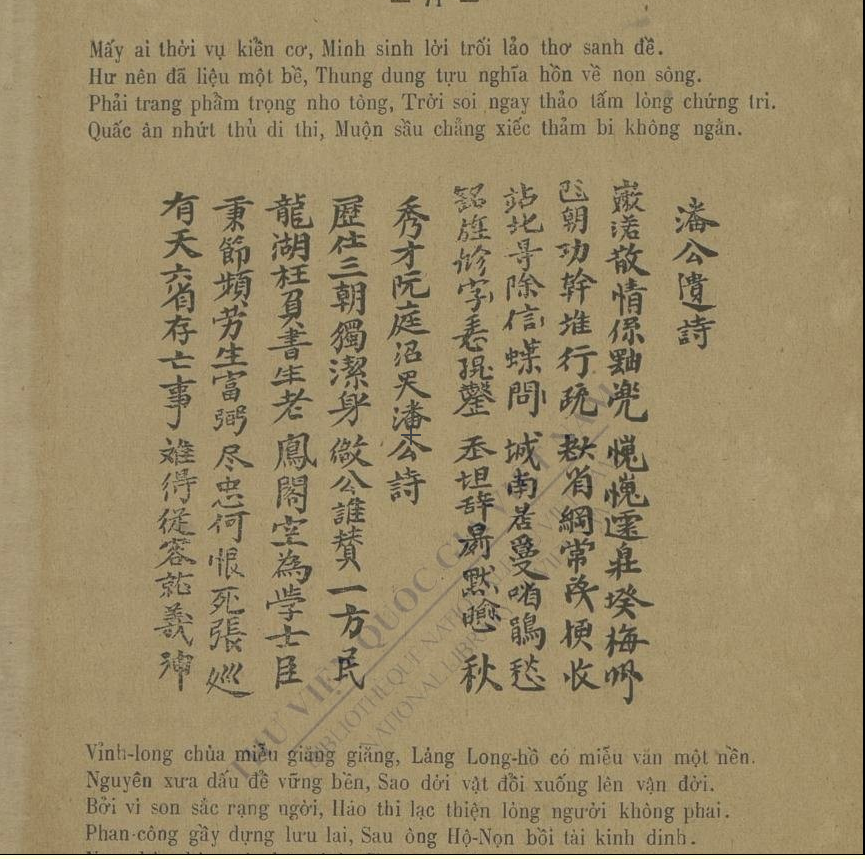 Mấy ai thời vụ kiển cơ, Minh sinh lời trối lảo thơ sanh đề.
Hư nên đã liệu một bề, Thung dung tựu nghĩa hồn về non sông.
Phải trang phẩm trọng nho tòng, Trời soi ngay thảo tấm lòng chứng tri.
Quấc ân nhứt thủ di thi, Muộn sầu chẳng xiếc thảm bi không ngằn.
潘公遺詩
渃散情係 梅
朝功幹堆行疏 省綱常 梗收
站北 除信蝶問 城南 鵑愁
銘旌 字 坦辞 默 秋
秀才阮庭沼哭潘公詩
歷仕三朝獨潔身 微公誰賛一方民
龍湖枉負書生老 鳳閣空為學士臣
秉節頻勞生富弼 尽忠何恨死張巡
有天六省存亡事 難得從容就義神
Vỉnh-long chùa miễu giăng giăng, Làng Long-hồ có miễu văn một nền.
Nguyên xưa dấu đề vững bền, Sao dời vật đổi xuống lên vận đời.
Bởi vì son sắc rạng ngời, Hảo thi lạc thiện lòng người không phai.
Phan-công gầy dựng lưu lai, Sau ông Hộ-Nọn bồi tài kinh dinh.
THƯ VIỆN QUỐC GIA VIỆT NAM
BIBLIOTHEQUE NATIONALE
NATIONAL LIBRARY